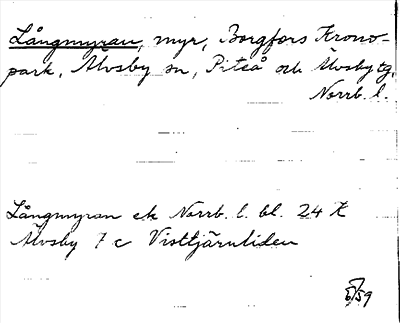 Långmyran, myr, Borgfors Krono-
park, Älvsby sn, Piteå och Älvsby tg,
Norrb. l.
Långmyran ek Norrb. l. bl. 24 K
Älvsby 7 c Visttjärnliden
5/59